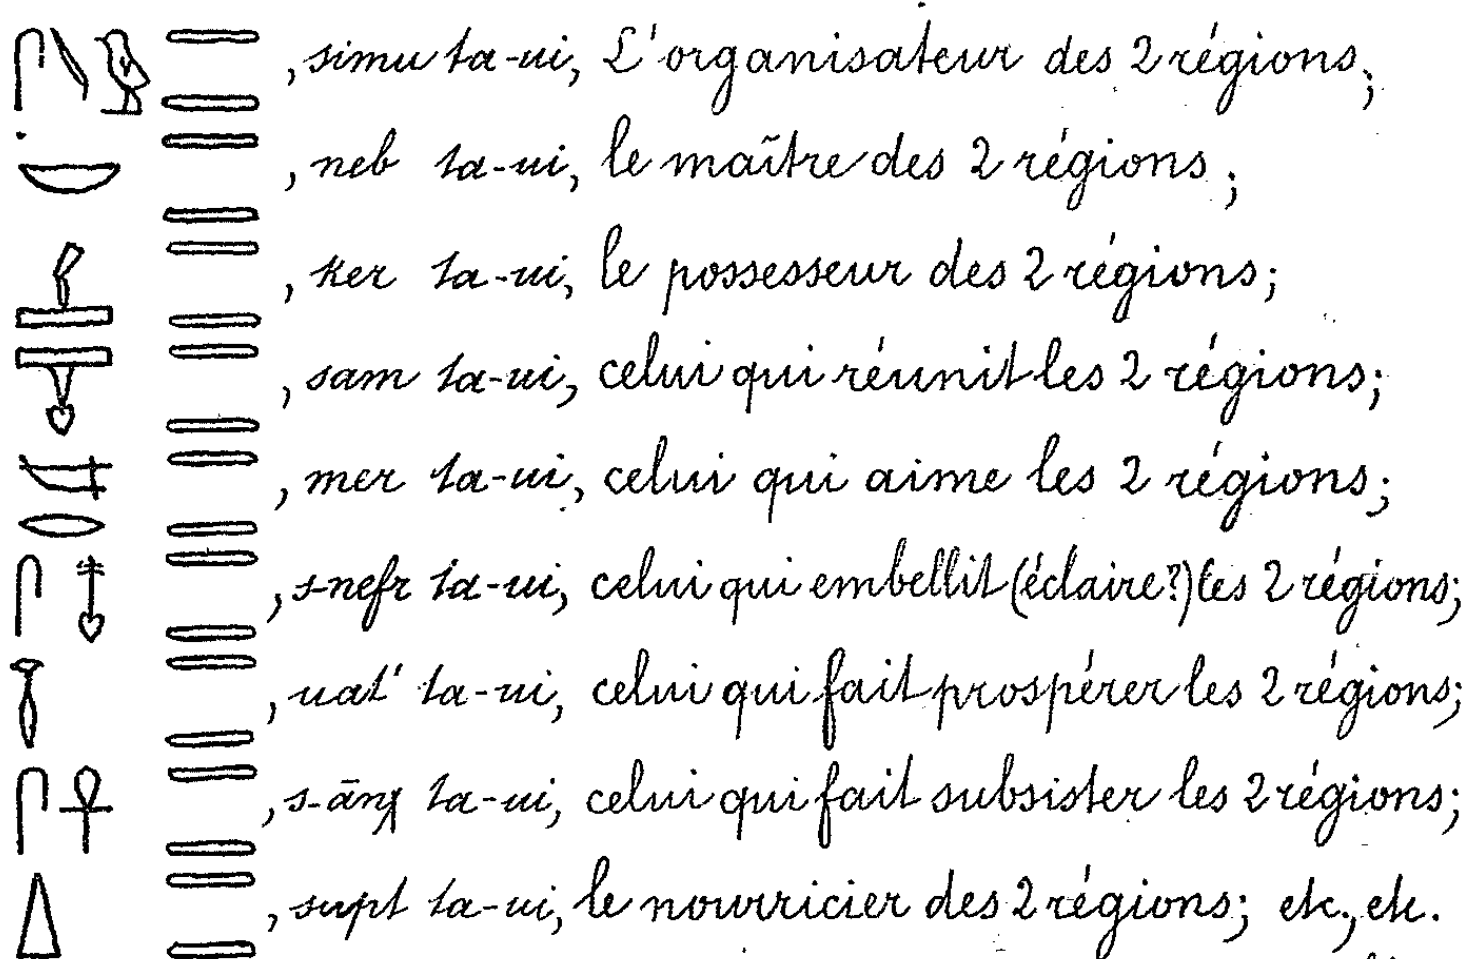 , simu ta-ui, L'organisateur des 2 régions;
, neb ta-ui, le maître des 2 régions;
, ker ta-ui, le possesseur des 2 régions;
, sam ta-ui, celui qui réunit les 2 régions;
, mer ta-ui, celui qui aime les 2 régions;
, s-nefr ta-ui, celui qui embellit (éclaire?) les 2 régions;
, uat' ta-ui, celui qui fait prospérer les 2 régions;
, s-ānχ ta-ui, celui qui fait subsister les 2 régions;
, supt ta-ui, le nourricier des 2 régions; etc., etc.